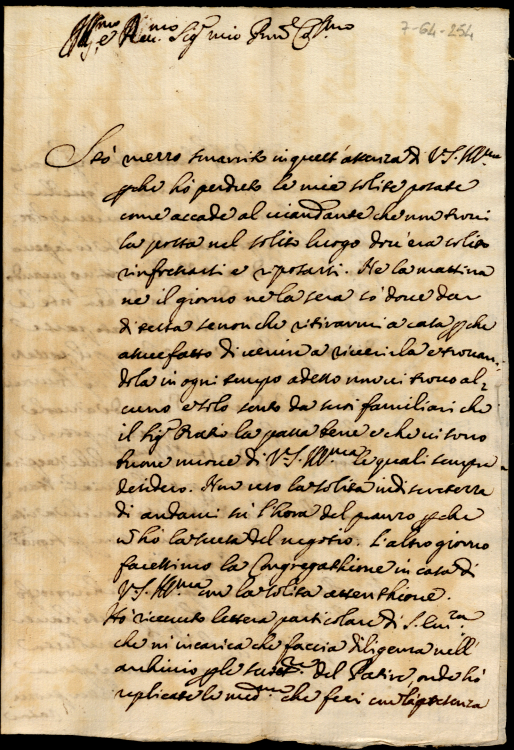 7-64-254
Ill.mo e Rev.mo Sig.r mio P.rone Col.mo
Stò mezzo smarrito in quest'assenza di V.S. Ill.ma
p che hò perduto le mie solite posate
come accade al viandante che non trovi
la posta nel solito luogo dov'era solito
rinfrescarsi e riposarsi. Ne la mattina
ne il giorno ne la sera sò dove dar
di testa se non che ritirarmi a casa p che
assuefatto di venire a riverirla e trovan
dola in ogni tempo adesso non ci trovo al=
cuno e solo sento da suoi familiari che
il Sig.r Prato la passa bene e che ci sono
buone nuove di V.S. Ill.ma le quali sempre
desidero. Non uso la solita indiscretezza
di andarci sù l'hora del pranzo p che
non hò la scusa del negotio. L'altro giorno
facessimo la Congregathione in casa di
V.S. Ill.ma con la solita attenthione.
Hò ricevuto lettera particolare di S. Em.za
che mi incarica che faccia diligenza nell'
archivio p le del Patire, onde hò
replicato le med.me che feci con la presenza